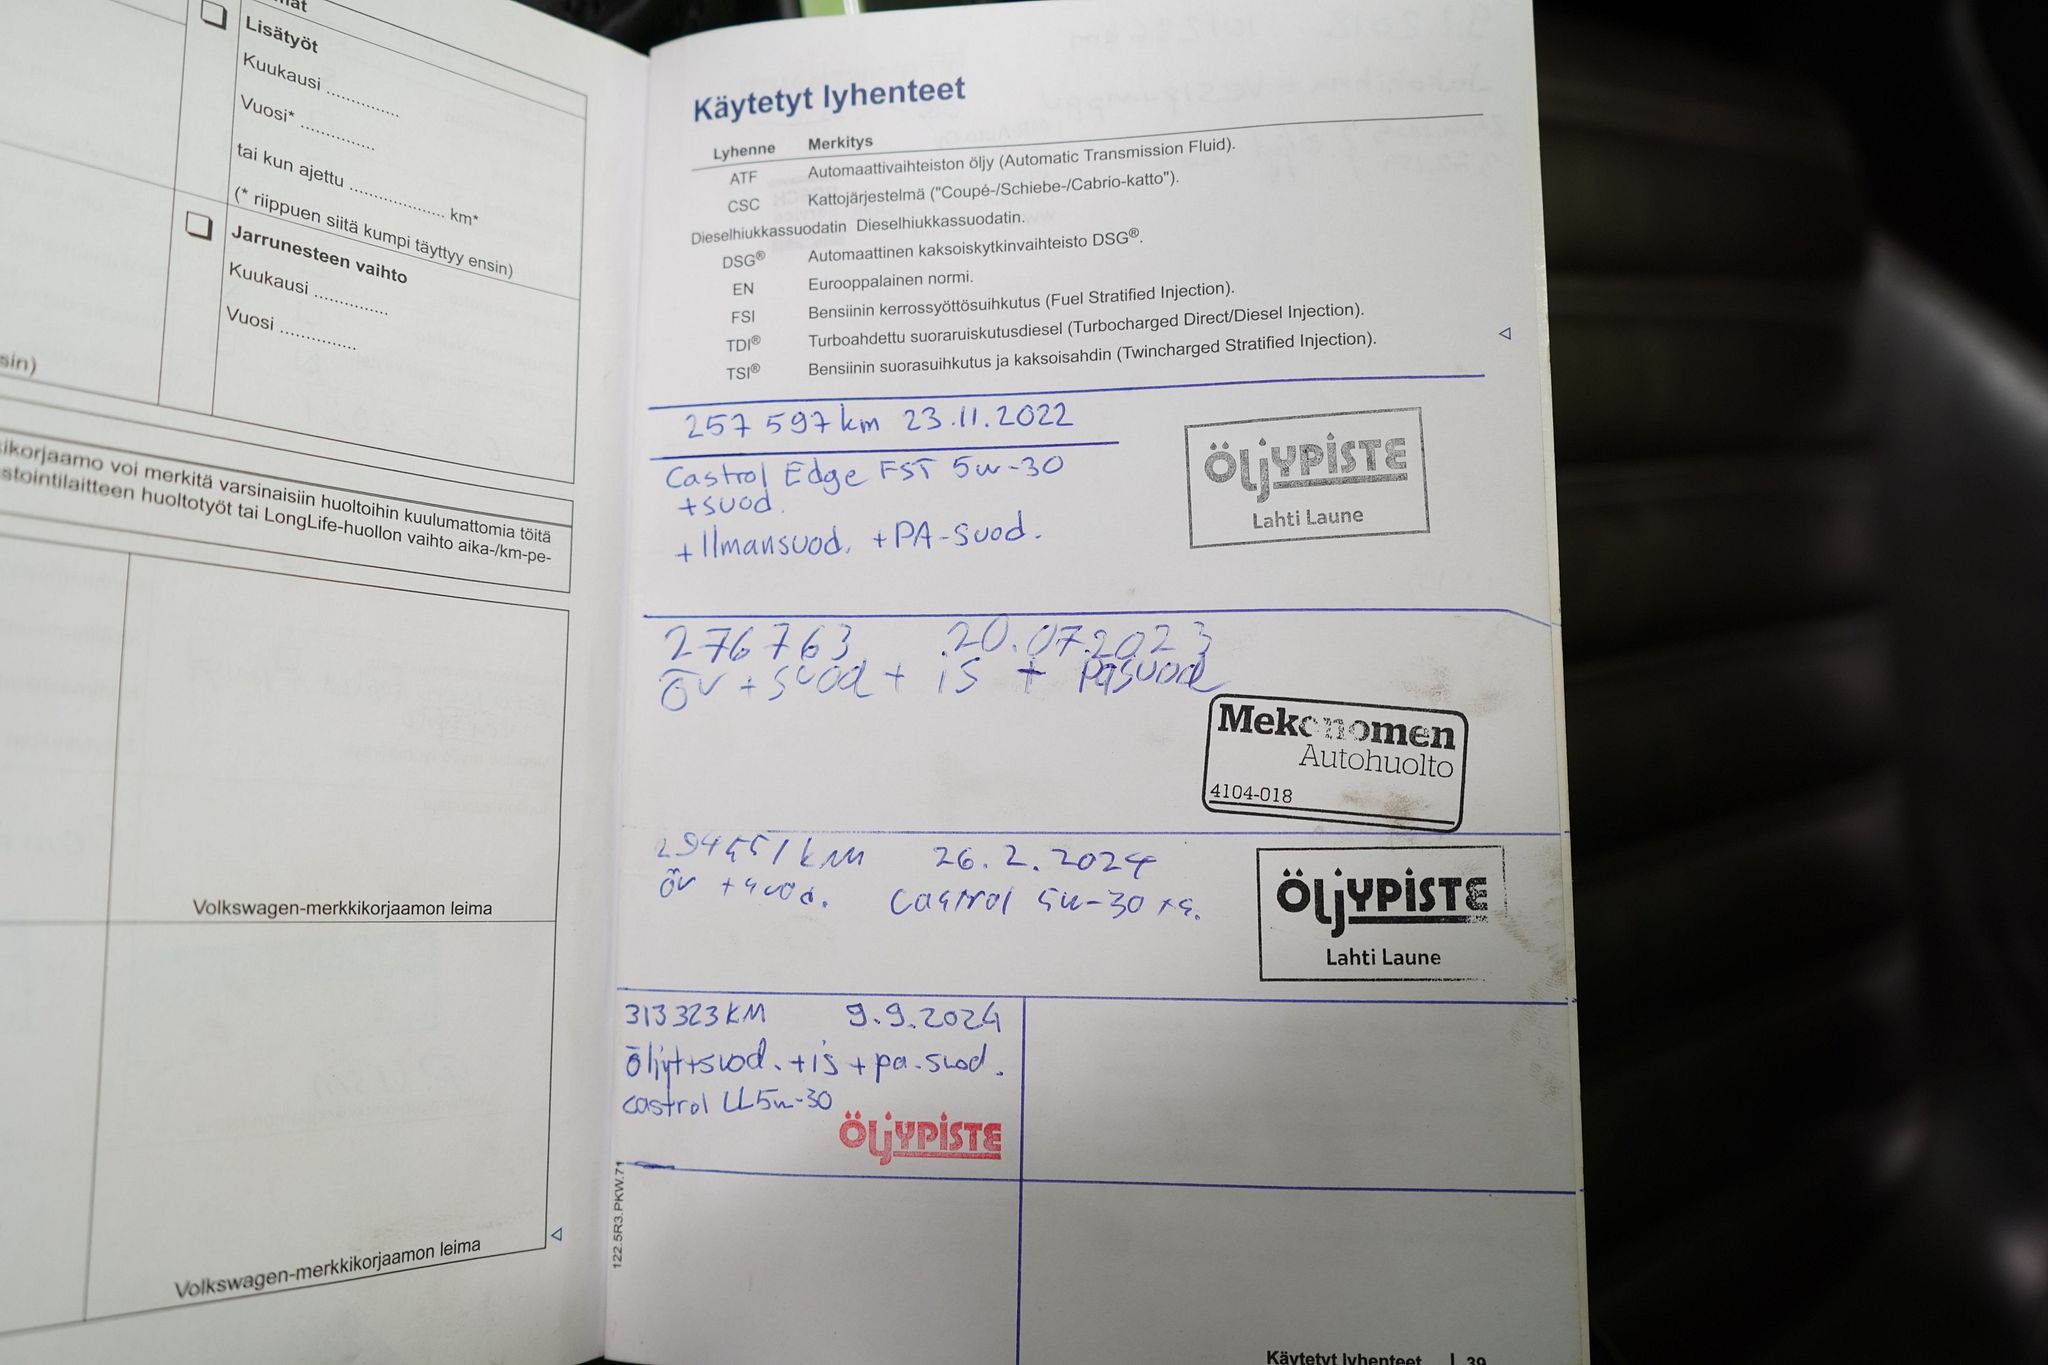 Lisätyöt
Kuukausi .............
Vuosi* .............
tai kun ajettu ................. km*
(* riippuen siitä kumpi täyttyy ensin)
Jarrunesteen vaihto
Kuukausi .............
Vuosi .............
sin)
ikorjaamo voi merkitä varsinaisiin huoltoihin kuulumattomia töitä
stointilaitteen huoltotyöt tai LongLife-huollon vaihto aika-/km-pe-
Volkswagen-merkkikorjaamon leima
Volkswagen-merkkikorjaamon leima
Käytetyt lyhenteet
Lyhenne Merkitys
ATF Automaattivaihteiston öljy (Automatic Transmission Fluid).
CSC Kattojärjestelmä ("Coupé-/Schiebe-/Cabrio-katto").
Dieselhiukkassuodatin Dieselhiukkassuodatin.
DSG® Automaattinen kaksoiskytkinvaihteisto DSG®.
EN Eurooppalainen normi.
FSI Bensiinin kerrossyöttösuihkutus (Fuel Stratified Injection).
TDI® Turboahdettu suoraruiskutusdiesel (Turbocharged Direct/Diesel Injection).
TSI® Bensiinin suorasuihkutus ja kaksoisahdin (Twincharged Stratified Injection).
257 597 km 23.11.2022
Castrol Edge FST 5w-30
+suod.
+Ilmansuod. +PA-suod.
ÖLJYPISTE
Lahti Laune
276763 20.07.2023
öv+suod+ is + pasuod
Mekonomen
Autohuolto
4104-018
294551 km 26.2.2024
öv +suod. Castrol 5w-30
ÖLJYPISTE
Lahti Laune
313323KM 9.9.2024
öljyt+suod.+is+pa.suod.
castrol LL5w-30
ÖLJYPISTE
122.5R3.PKW.71
Käytetyt lyhenteet | 39